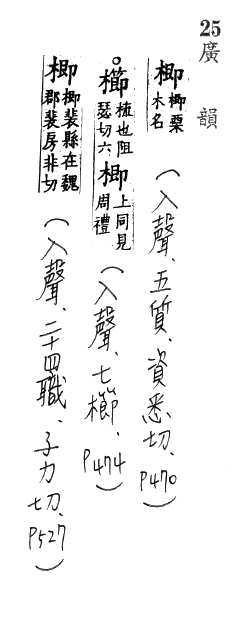 25廣韻
楖 楖栗木名（入聲、五質、資悉切、P470）
○櫛 梳也阻瑟切六 楖 上同見周禮（入聲、七櫛、P474）
楖 楖裴縣在魏郡裴房非切（入聲、二十四職、子力切、P527）